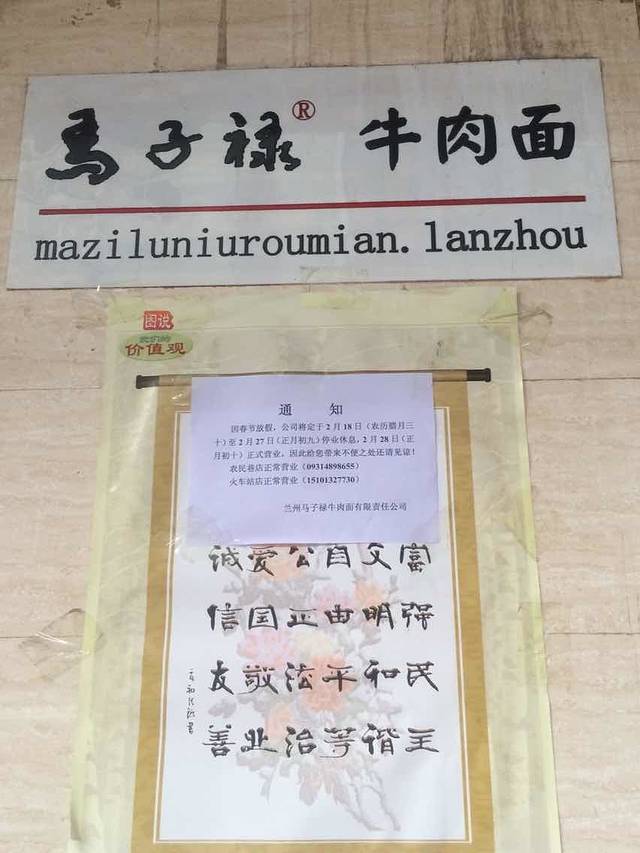 马子禄® 牛肉面
maziluniuroumian.lanzhou
图说
我们的
价值观
通 知
因春节放假，公司将定于2月18日（农历腊月三
十）至2月27日（正月初九）停业休息，2月28日（正
月初十）正式营业，因此给您带来不便之处还请见谅！
农民巷店正常营业（09314898655）
火车站店正常营业（15101327730）
兰州马子禄牛肉面有限责任公司
富强民主
文明和谐
自由平等
公正法治
爱国敬业
诚信友善